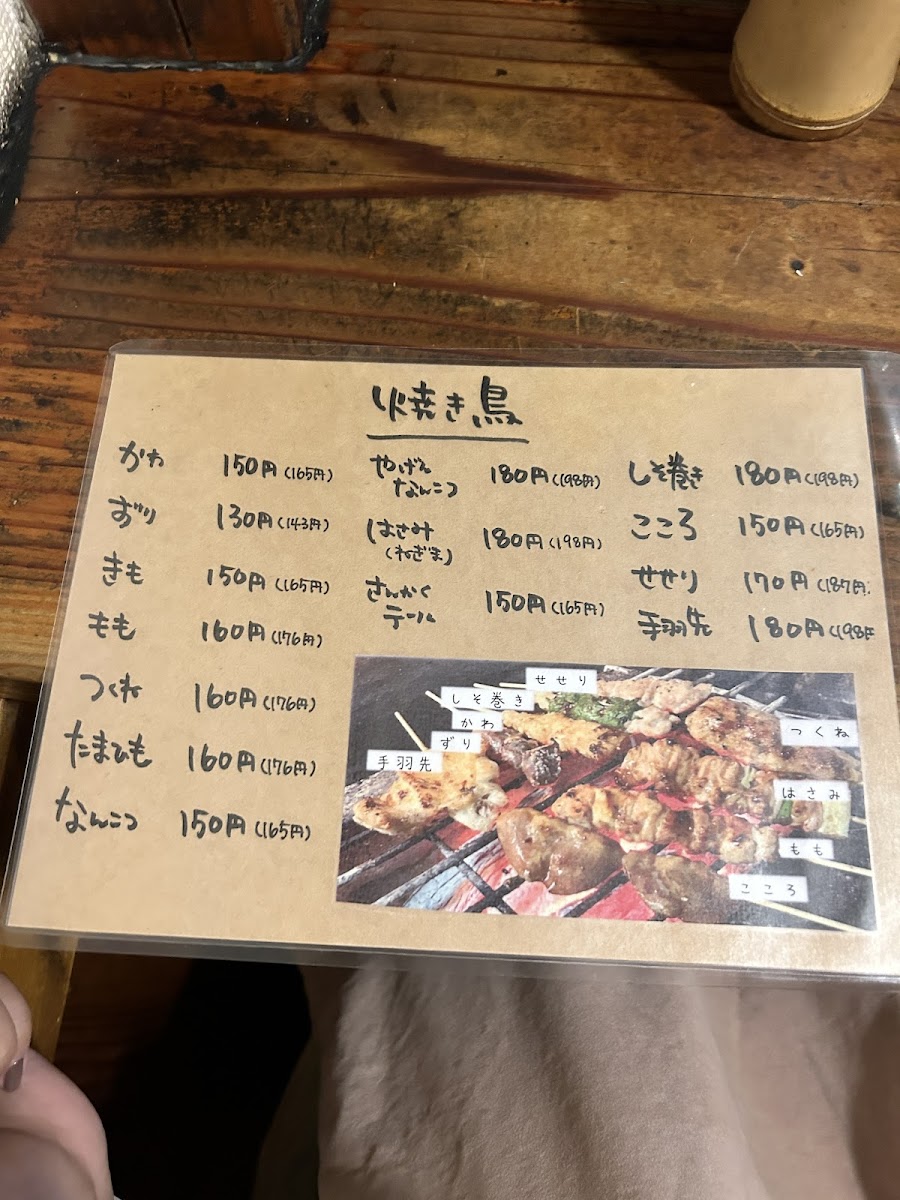 焼き鳥
かわ 150円(165円)
ずり 130円(143円)
きも 150円(165円)
もも 160円(176円)
つくね 160円(176円)
たまひも 160円(176円)
なんこつ 150円(165円)
やげん
なんこつ 180円(198円)
はさみ
(ねぎま) 180円(198円)
さんかく
テール 150円(165円)
しそ巻き 180円(198円)
こころ 150円(165円)
せせり 170円(187円)
手羽先 180円(198円
せせり
しそ巻き
かわ
ずり
手羽先
つくね
はさみ
もも
こころ